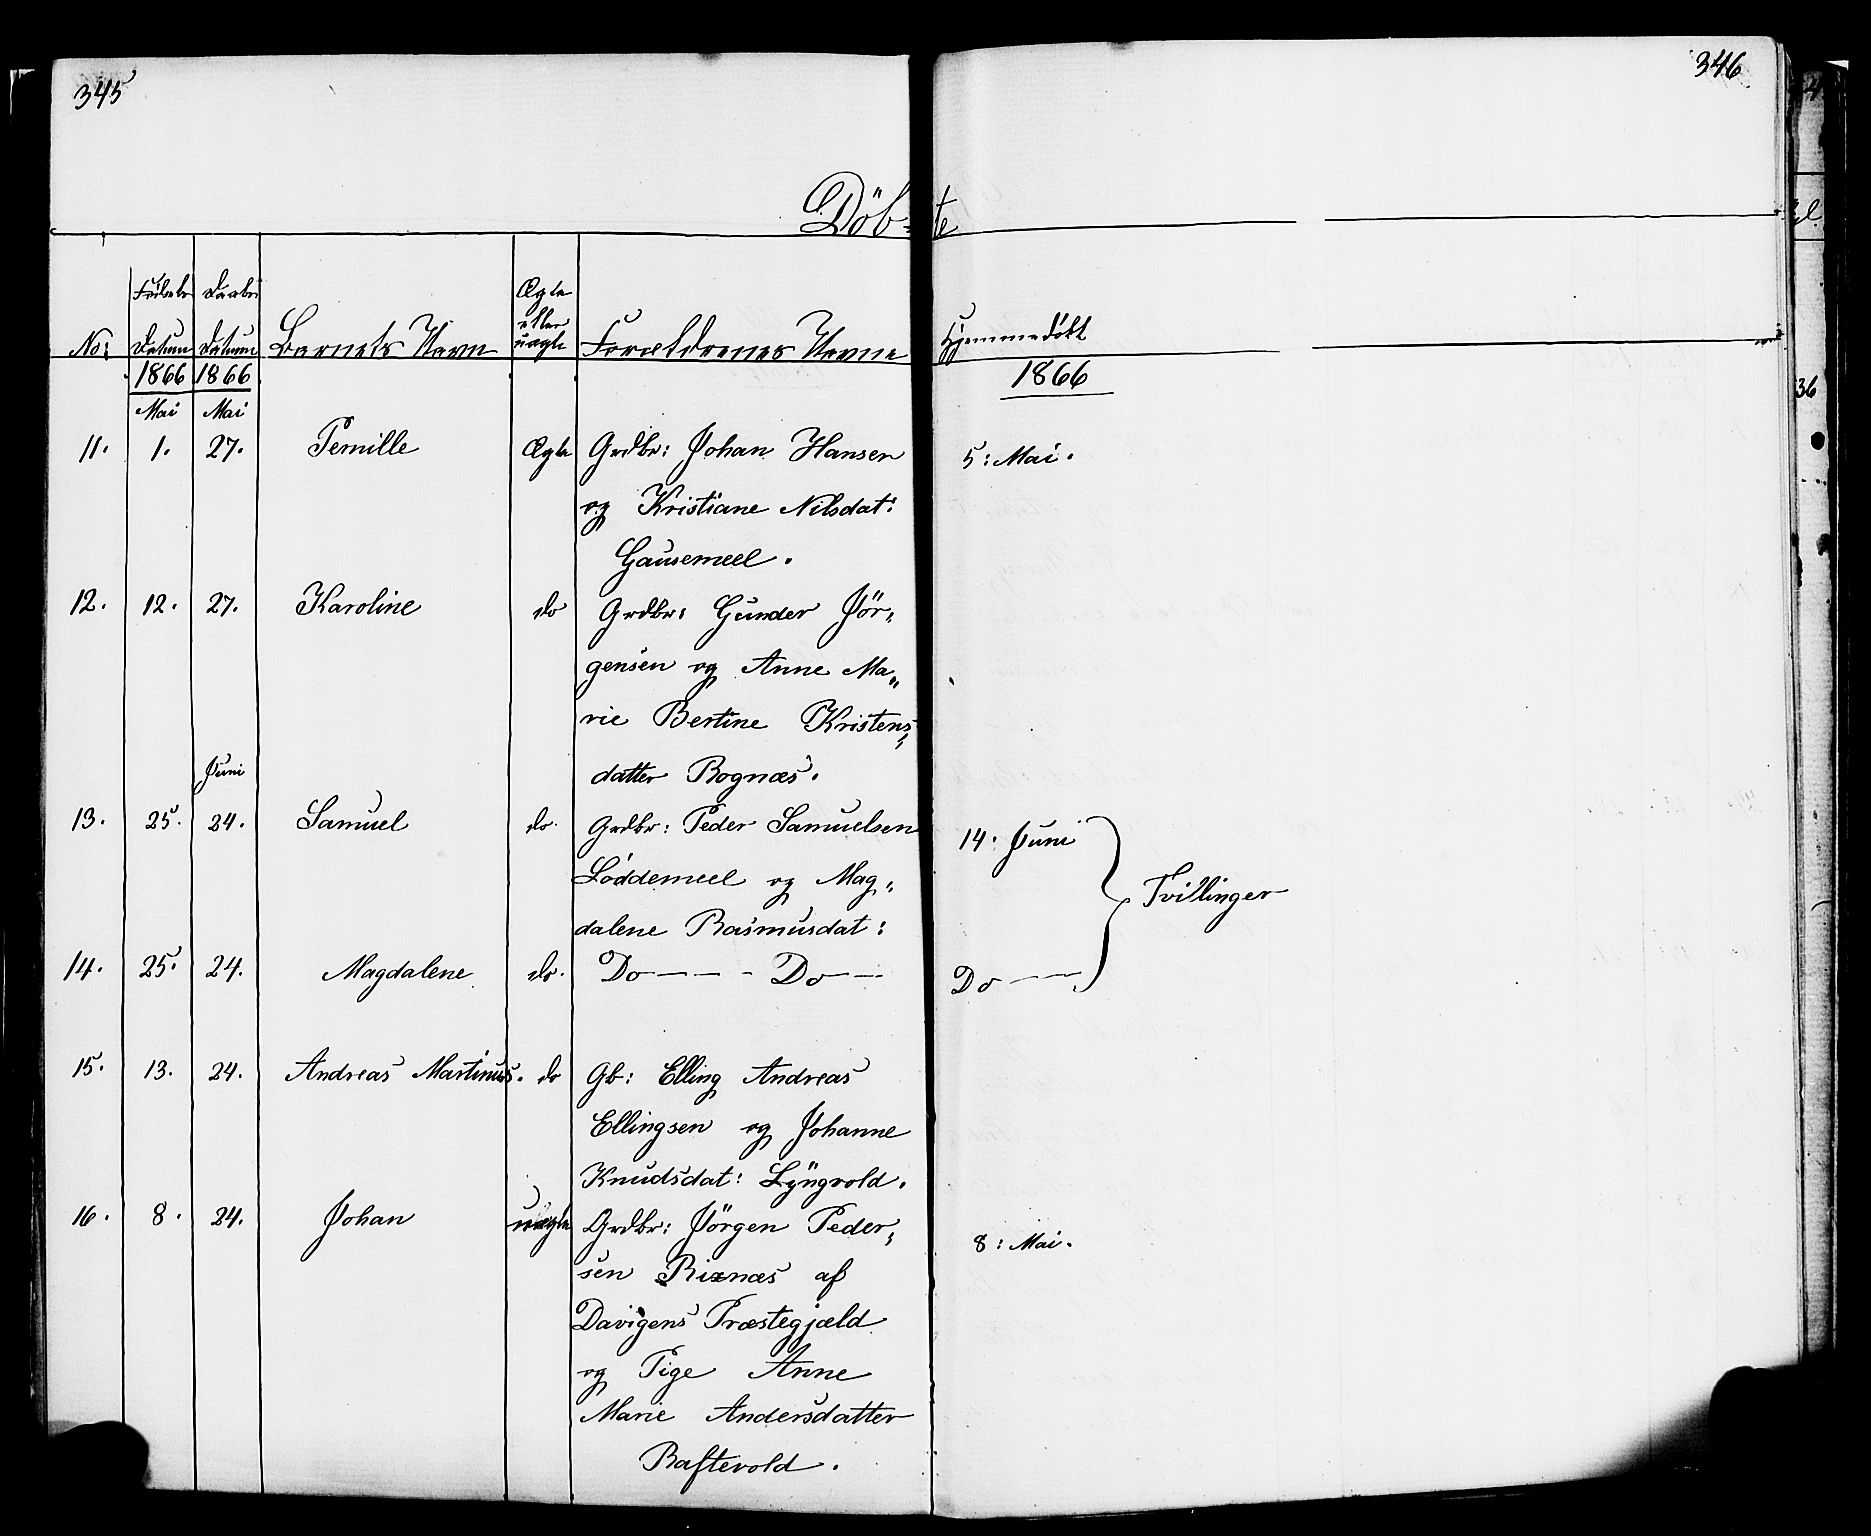 345
346
Döbte
No: Födsels Datum Daabs Datum Barnets Navn Ægte eller uægte Forældrenes Navne Hjemmedöbt
1866 1866 1866
Mai Mai
11. 1. 27. Pernille Ægte Grdbr: Johan Hansen 5: Mai.
og Kristiane Nilsdat:
Gausemeel.
12. 12. 27. Karoline do Grdbr: Gunder Jör„
gensen og Anne Ma„
rie Bertine Kristens„
Juni datter Bognæs.
13. 25. 24. Samuel do. Grdbr: Peder Samuelsen 14. Juni
Löddemeel og Mag„ Tvillinger
dalene Rasmusdat:
14. 25. 24. Magdalene do. Do — — - Do — — Do — —
15. 13. 24. Andreas Martinus. do Gb: Elling Andreas
Ellingsen og Johanne
Knudsdat: Lÿngvold.
16. 8. 24. Johan uægte Grdbr: Jörgen Peder„ 8: Mai.
sen Rixnæs af
Davigens Præstegjæld
og Pige Anne
Marie Andersdatter
Raftevold.
36